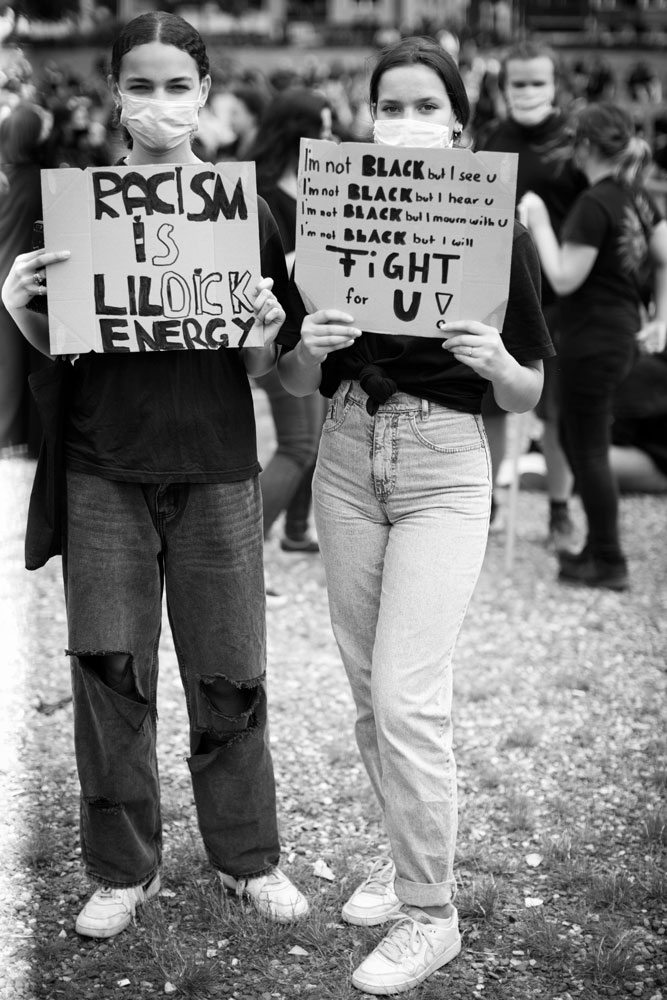 RACISM
iS
LILDICK
ENERGY
I'm not BLACK but I see U
I'm not BLACK but I hear U
I'm not BLACK but I mourn with U
I'm not BLACK but I will
FiGHT
for U!